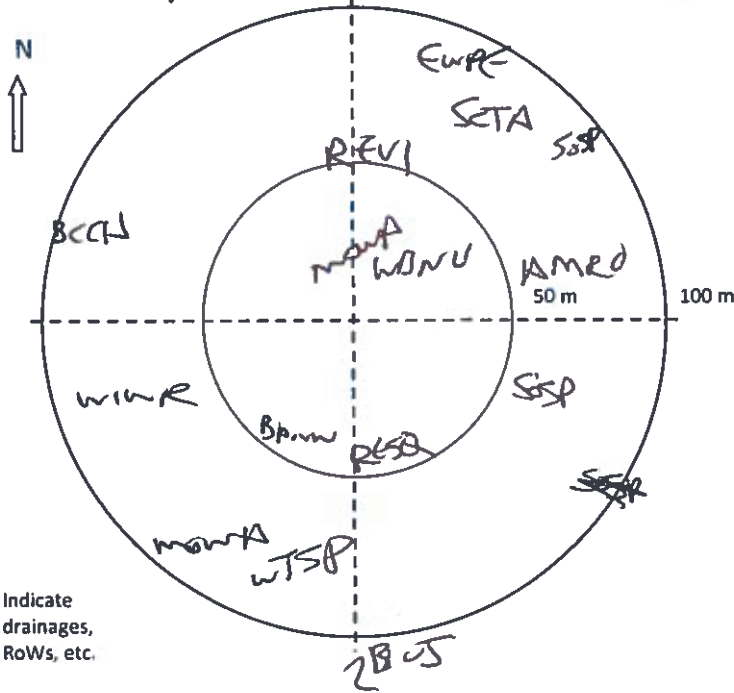 N
EWPE
SCTA
SOSP
REVI
BCCH
MOWA
WBNU
AMRO
50 m
100 m
WIWR
SOSP
RESQ
MOWA
WTSP
Indicate
drainages,
RoWs, etc.
2BCJ